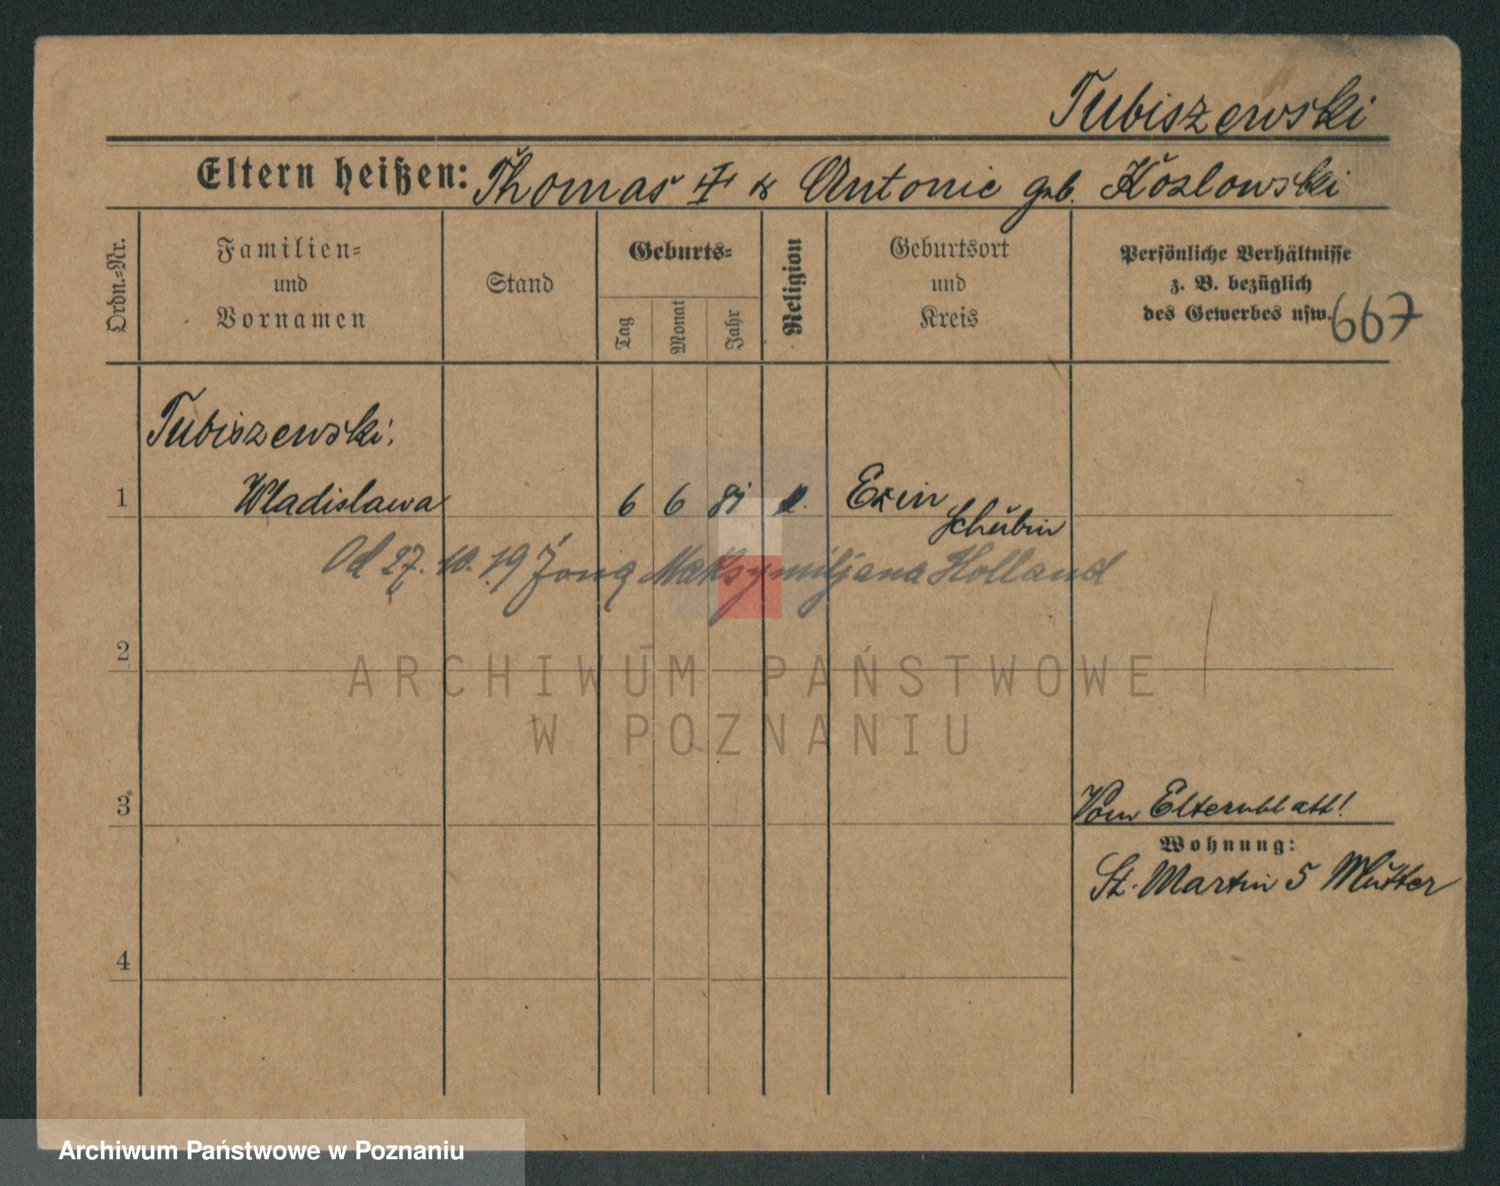 Tubiszewski
Eltern heißen: Thomas † & Antonie geb. Kozlowski
Ordn.-Nr.
Familien-
und
Vornamen
Stand
Geburts-
Tag
Monat
Jahr
Religion
Geburtsort
und
Kreis
Persönliche Verhältnisse
z. B. bezüglich
des Gewerbes usw.
667
Tubiszewski,
1 Wladislawa 6 6 81 k. Exin
Schubin
Od 27.10.19 żoną Maksymiljana Holland
2
ARCHIWUM PAŃSTWOWE
W POZNANIU
3
Vom Elternblatt!
Wohnung:
St. Martin 5 Mutter
4
Archiwum Państwowe w Poznaniu